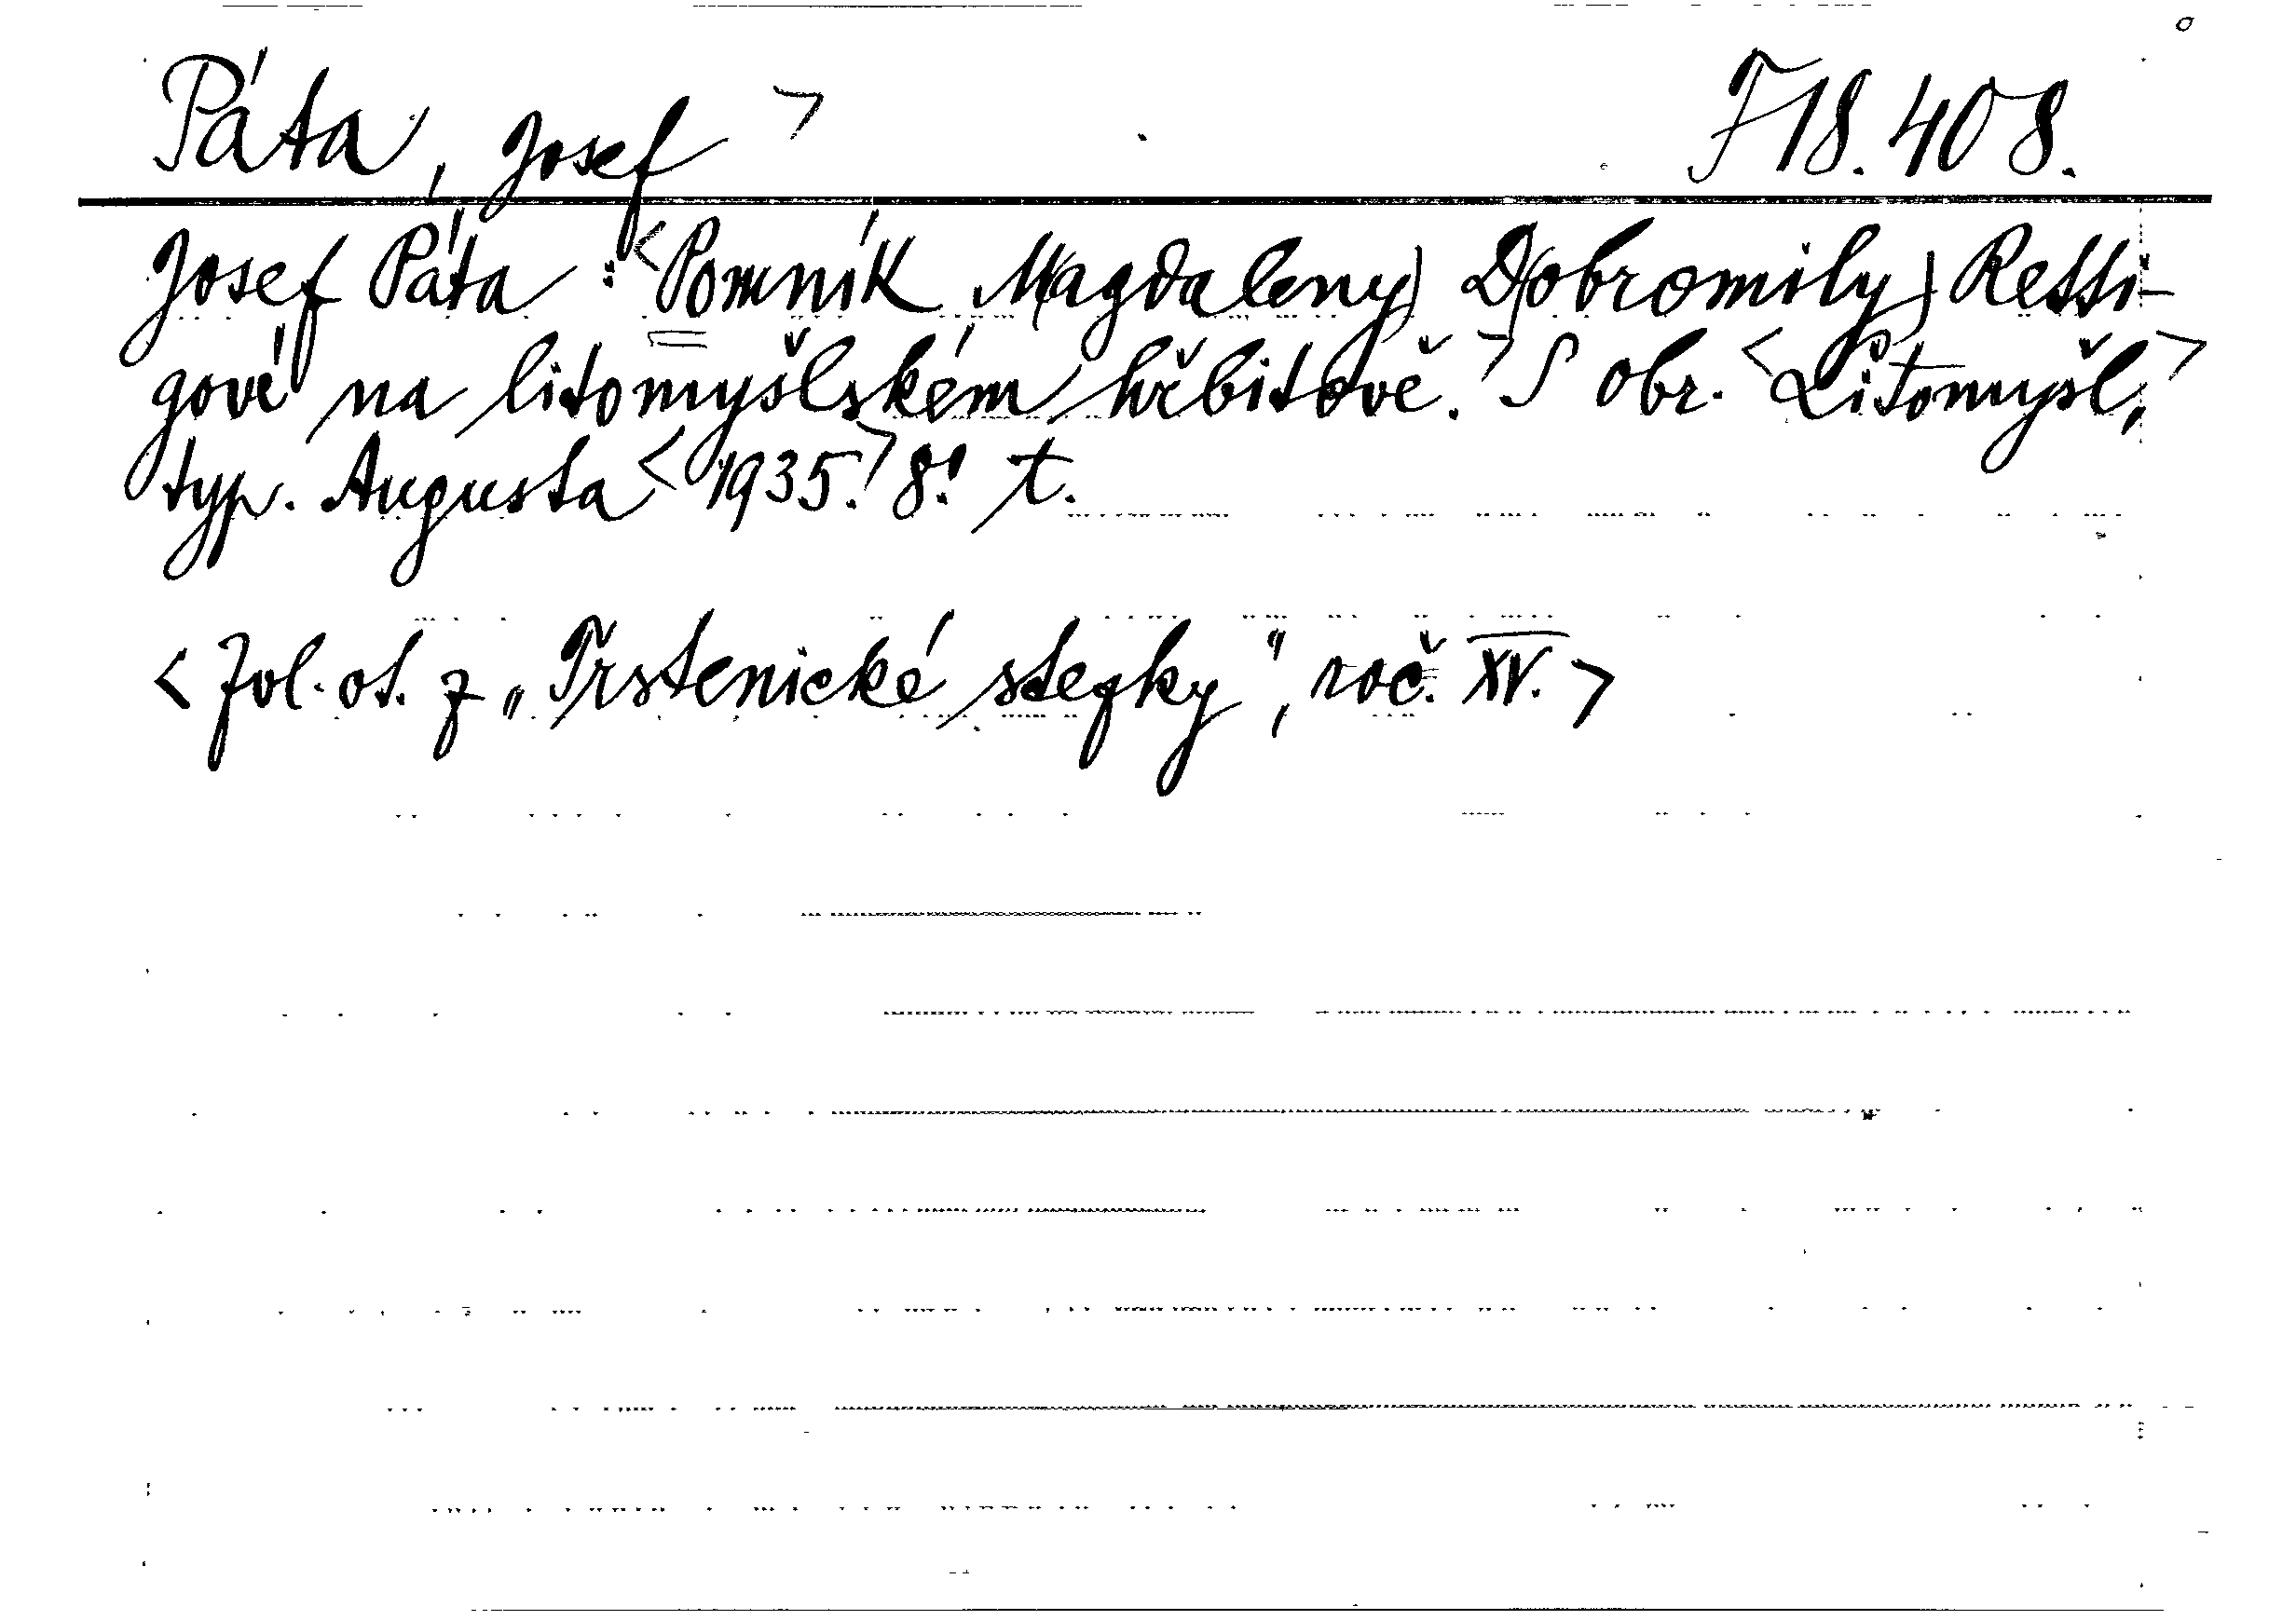 Páta, Josef > F 18.408.
Josef Páta: <Pomník M(agdaleny) D(obromily) Retti-
gové na litomyšlském hřbitově.> S obr. <Litomyšl,>
typ. Augusta <1935.> 8! t.
<Zvl. ot. z „Trstenické stezky", roč. XV.>